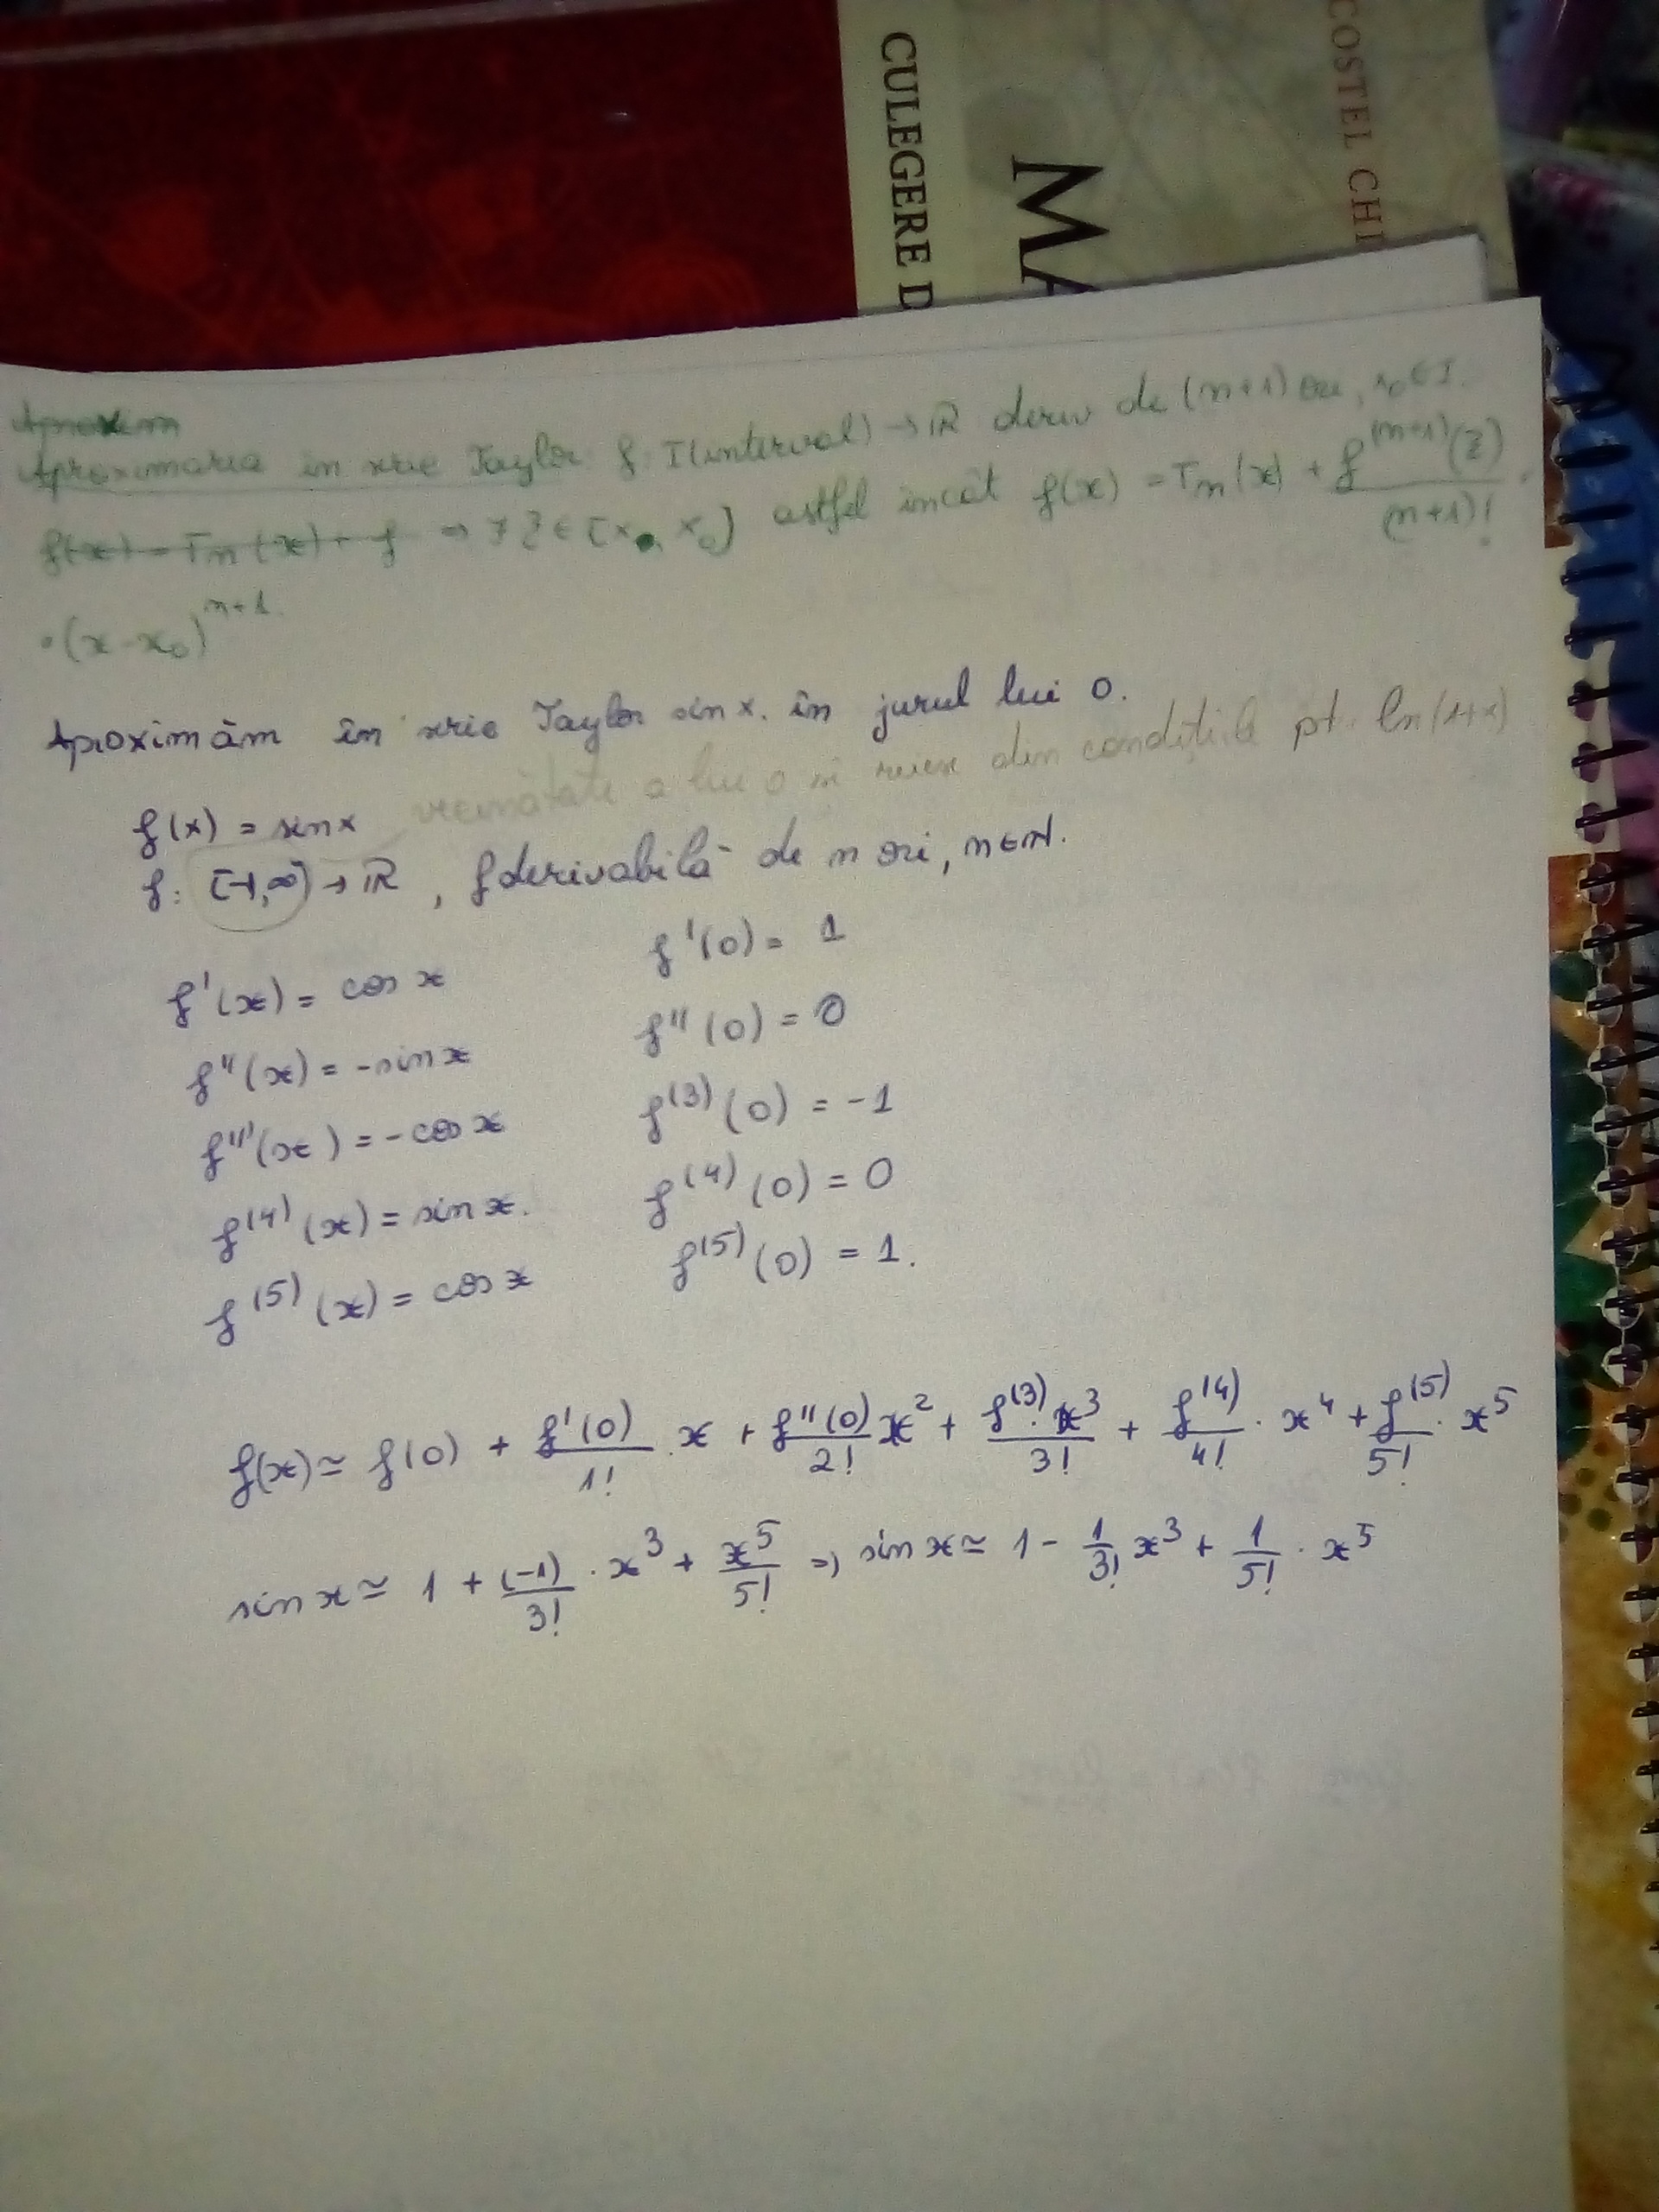 COSTEL CHI
CULEGERE D
MA
Aproxim
Aproximarea in serie Taylor f: I(interval) → ℝ deriv de (n+1) ori, x₀ ∈ I.
f(x) = Tₙ(x) + f => ∃ z ∈ [x, x₀] astfel incât f(x) = Tₙ(x) + f⁽ⁿ⁺¹⁾(z)/(n+1)! ·
·(x-x₀)ⁿ⁺¹.
Aproximăm în serie Taylor sin x. în jurul lui 0.
vecinătate a lui 0 din condițiile pt. ln(1+x)
f(x) = sin x
f: [-1,∞) → ℝ, f derivabilă de n ori, n∈ℕ.
f'(x) = cos x f'(0) = 1
f''(x) = -sin x f''(0) = 0
f'''(x) = -cos x f⁽³⁾(0) = -1
f⁽⁴⁾(x) = sin x. f⁽⁴⁾(0) = 0
f⁽⁵⁾(x) = cos x f⁽⁵⁾(0) = 1.
f(x) ≃ f(0) + f'(0)/1! · x + f''(0)/2! x² + f⁽³⁾·x³/3! + f⁽⁴⁾/4! · x⁴ + f⁽⁵⁾/5! · x⁵
sin x ≃ 1 + (-1)/3! · x³ + x⁵/5! => sin x ≃ 1 - 1/3! x³ + 1/5! · x⁵